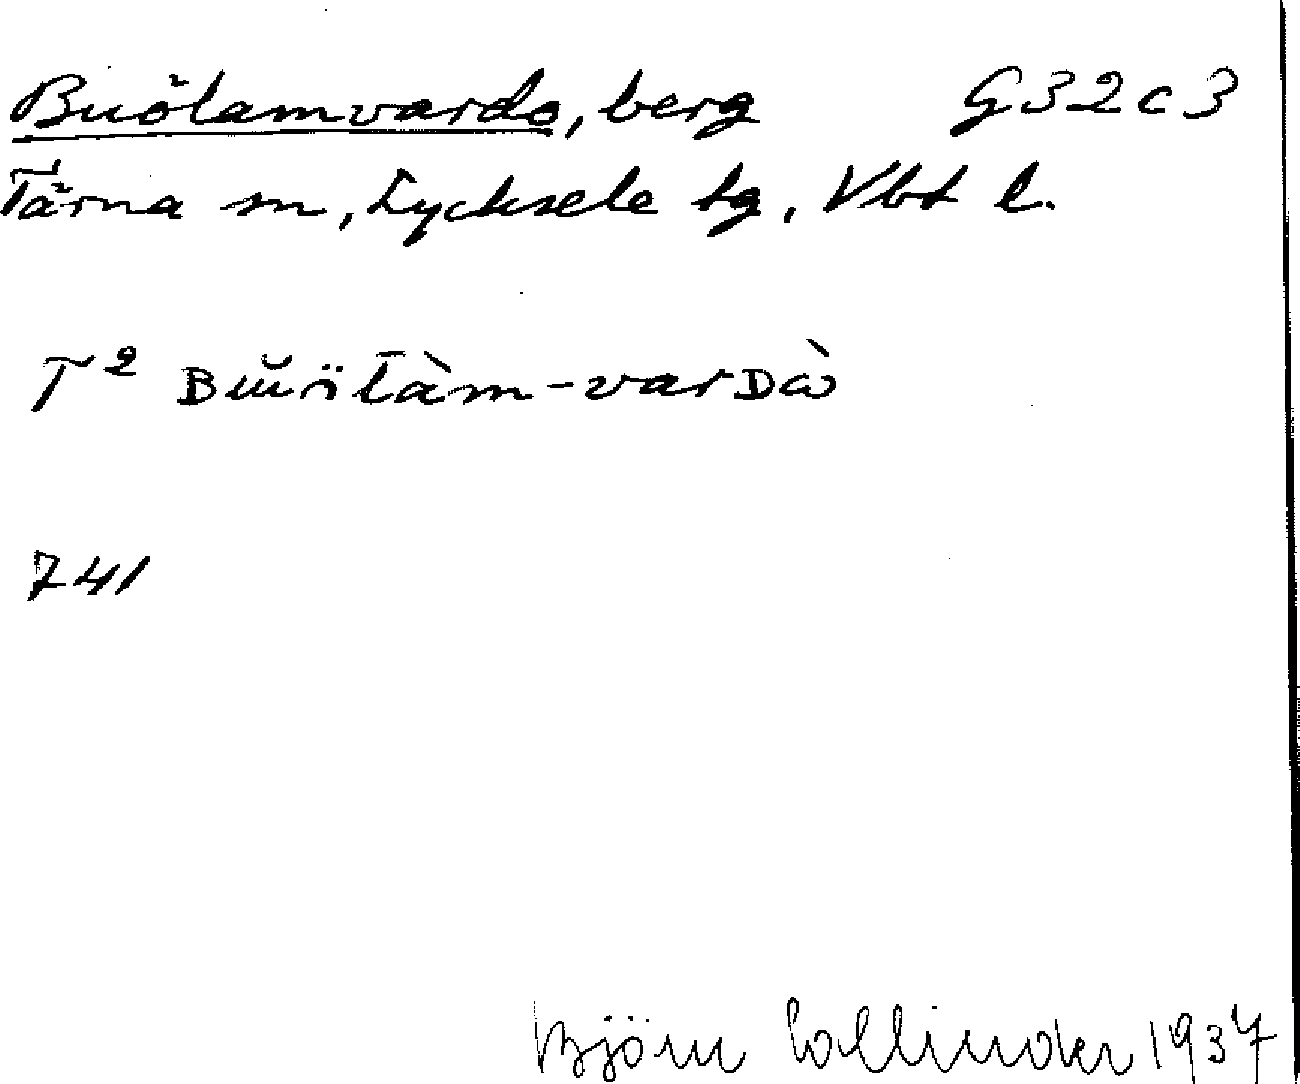 Buölamvardo, berg G32c3
Tärna sn, Lycksele lg, Vbt l.
T²
741
Björn Collinder 1937